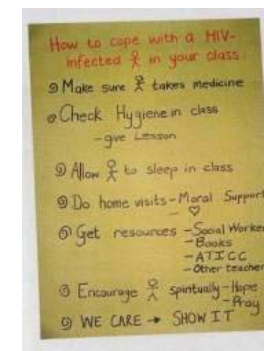 How to cope with a HIV-
infected in your class
Make sure takes medicine
Check Hygiene in class
- give Lesson
Allow to sleep in class
Do home visits - Moral Support
Get resources - Social Worker
- Books
- ATICC
- Other teacher
Encourage spiritually - Hope
- Pray
WE CARE → SHOW IT